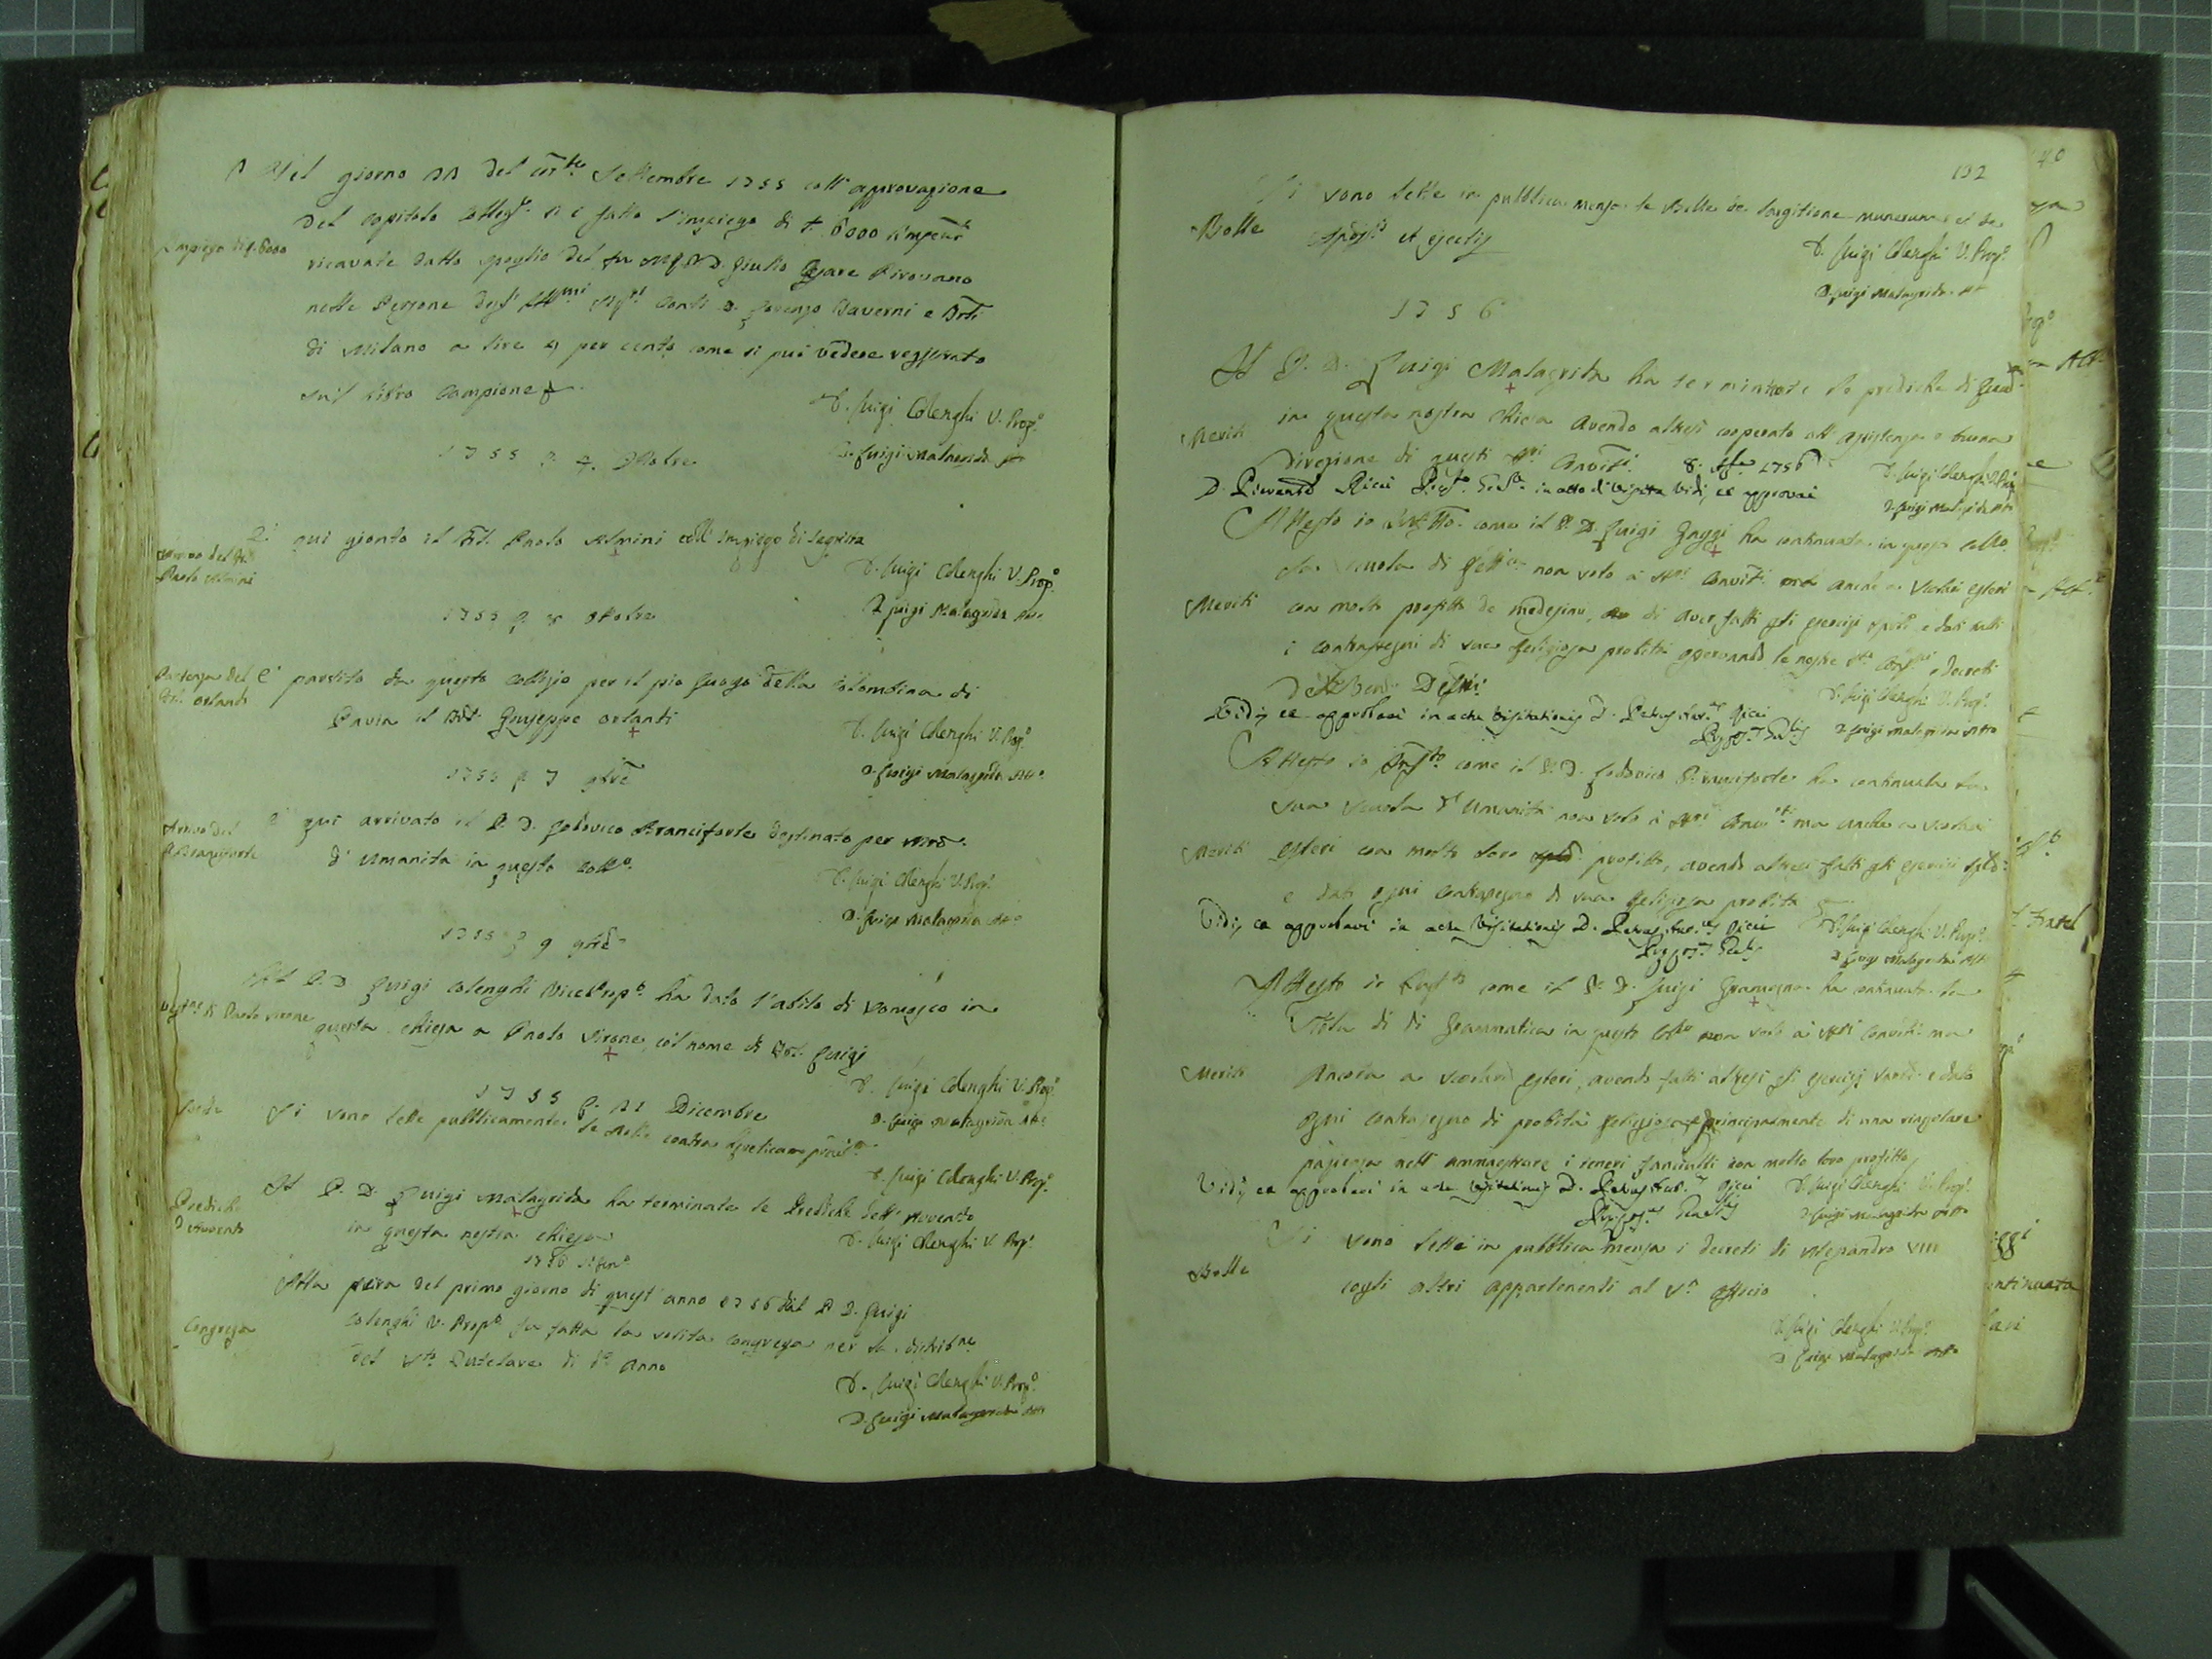 Nel giorno 11 del corrte Settembre 1755 coll' approvazione
del Capitolo Colleg.e si è fatto l'impiego di £. 6000
Impiego di £. 6000
ricavate dallo spoglio del fu M.R.P.D. Giulio Cesare Pirovano
nelle Persone degl' Ill.mi Sig.ri Conti D. Lorenzo Taverni e Frlli
di Milano a lire 4 per cento come si può vedere registrato
sul libro Campione
D. Luigi Colenghi V. Prop.o
D. Luigi Malagrida
1755 7bre
È qui gionto il Frl. Paolo Almini coll' Impiego di Sagrista
Arrivo del Fr.
Paolo Almini
D. Luigi Colenghi V. Prop.o
D. Luigi Malagrida Att.o
1755 8 Ottobre
Partenza del
Fr. Orlanti
È partito da questo Collegio per il pio Luogo della Colombina di
Pavia il Frl. Giuseppe Orlanti
D. Luigi Colenghi V. Prop.o
D. Luigi Malagrida Att.o
1755 7 9bre
Arrivo del
P. Branciforte
È qui arrivato il P. D. Lodovico Branciforte destinato per Mro.
d' Umanità in questo Coll.o
D. Luigi Colenghi V. Prop.o
D. Luigi Malagrida Att.o
1755 9 9bre
Il P. D. Luigi Colenghi Vice Prop.o ha dato l'abito di Somasco in
di Paolo Sirone
questa chiesa a Paolo Sirone col nome di Frl. Luigi
D. Luigi Colenghi V. Prop.o
D. Luigi Malagrida Att.o
1755 11 Dicembre
Si sono lette pubblicamente le Bolle contra
D. Luigi Colenghi V. Prop.o
Prediche
d'Avvento
Il P. D. Luigi Malagrida ha terminate le Prediche dell' Avvento
in questa nostra chiesa
D. Luigi Colenghi V. Prop.o
1756
Alla sera del primo giorno di quest' anno 1756 dal P. D. Luigi
Congrega
Colenghi V. Prop.o fu fatta la solita congrega per la distrib.ne
del S.to Tutelare di d.o Anno
D. Luigi Colenghi V. Prop.o
D. Luigi Malagrida Att.o
132
Si sono lette in pubblica mensa le Bolle de largitione munerum et de
Bolle
Apost.is et ejectis
D. Luigi Colenghi V. Prop.o
D. Luigi Malagrida Att.o
1756
Il P. D. Luigi Malagrida ha terminate le prediche di Quad.
in questa nostra Chiesa avendo altresì cooperato all' assistenza e buona
Meriti
direzione di questi Sri. Convitt.i 8. 1756
D. Luigi Colenghi V. Prop.
D. Luigi Malagrida Att.o
D. Pietrant.o Ricci Prep.to in atto di Visita vidi, et approvai
Attesto io Infr.tto come il P. D. Luigi Gaggi ha continuata in questo Coll.o
la scuola di non solo a Sri. Convitt.i ma anche a Scolari esteri
Meriti
con molto profitto de' medesimi, di aver fatti gli esercizi spirti. e dati tutti
i contrassegni di sua religiosa probità osservando le nostre Ste. Cost.ni e decreti
D. Luigi Colenghi V. Prop.
D. Luigi Malagrida Att.o
Vidi, et approbavi in actu Visitationis D. Petrus Ant.us Ricci
Attesto io Infr.to come il P. D. Lodovico Branciforte ha continuata la
sua scuola d' Umanità non solo a Sri. Convitti. ma anche a Scolari
Meriti
esteri con molto loro profitto, avendo altresì fatti gli esercizi spli:
e dato ogni contrasegno di sua religiosa probità
Vidi, et approbavi in actu Visitationis D. Petrus Ant.us Ricci
D. Luigi Colenghi V. Prop.o
D. Luigi Malagrida Att.o
Attesto io Infr.to come il P. D. Luigi Gramegna ha continuata la
Scola di di Grammatica in questo Coll.o non solo ai Sri. Convitti. ma
Meriti
Ancora a scolari esteri, avendo fatti altresì gli esercizj spirti. e dato
ogni contrasegno di probità religiosa e principalmente di una singolare
pazienza nell' ammaestrare i teneri fanciulli con molto loro profitto
Vidi, et approbavi in actu Visitationis D. Petrus Ant.us Ricci
D. Luigi Colenghi V. Prop.o
D. Luigi Malagrida Att.o
Si sono lette in pubblica mensa i decreti di Alessandro VIII
Bolle
cogli altri appartenenti al S.to Officio
D. Luigi Colenghi V. Prop.o
D. Luigi Malagrida Att.o